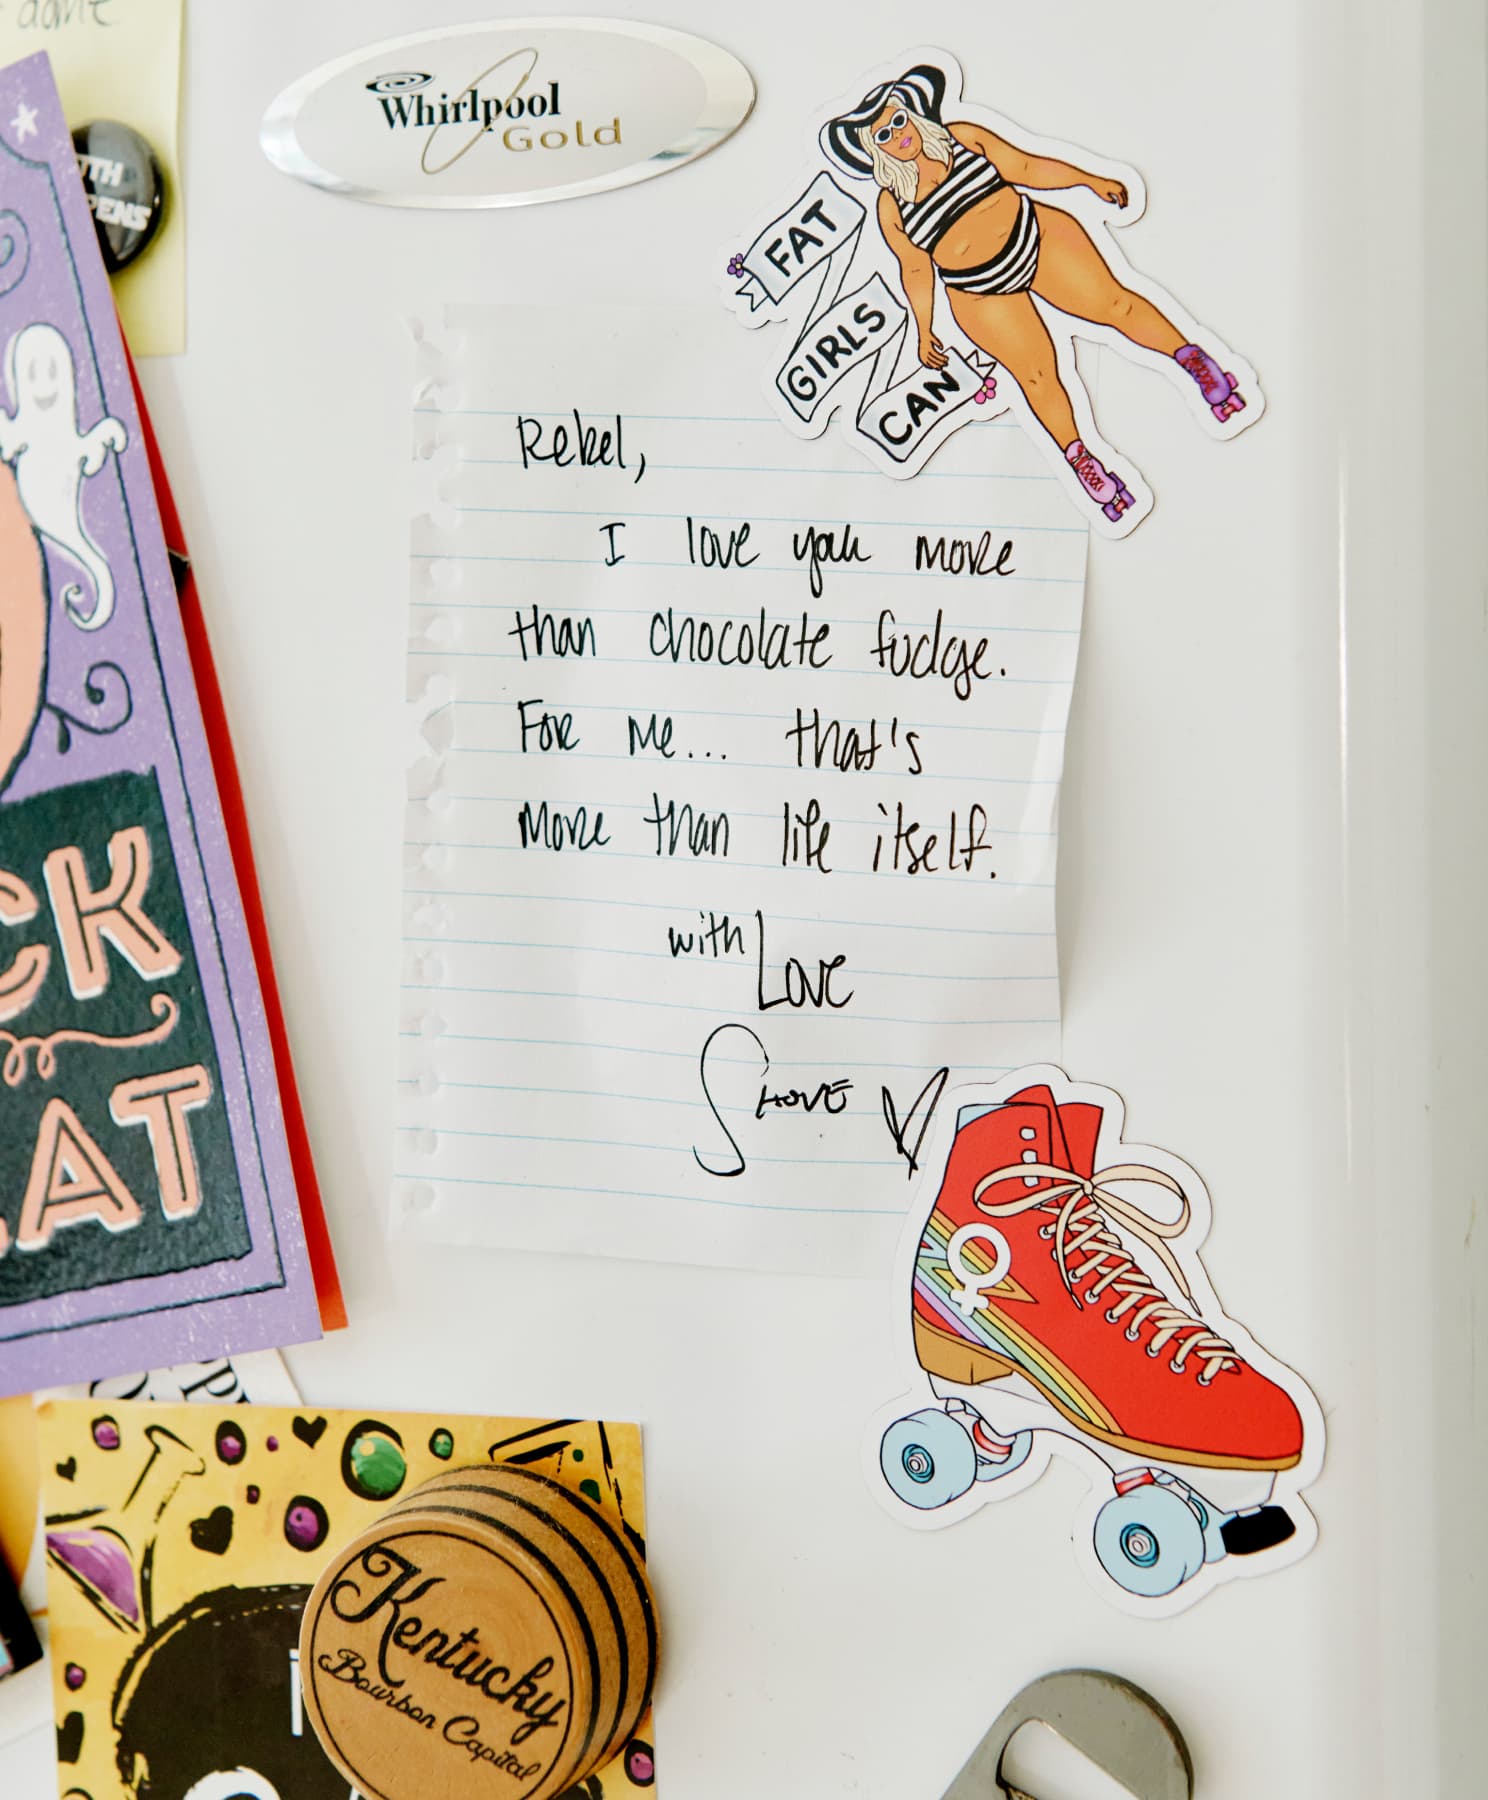 Whirlpool
Gold
FAT
GIRLS
CAN
Rebel,
I love yah more
than chocolate fudge.
For me... that's
more than life itself.
with Love
Shove
CK
EAT
Kentucky
Bourbon Capital